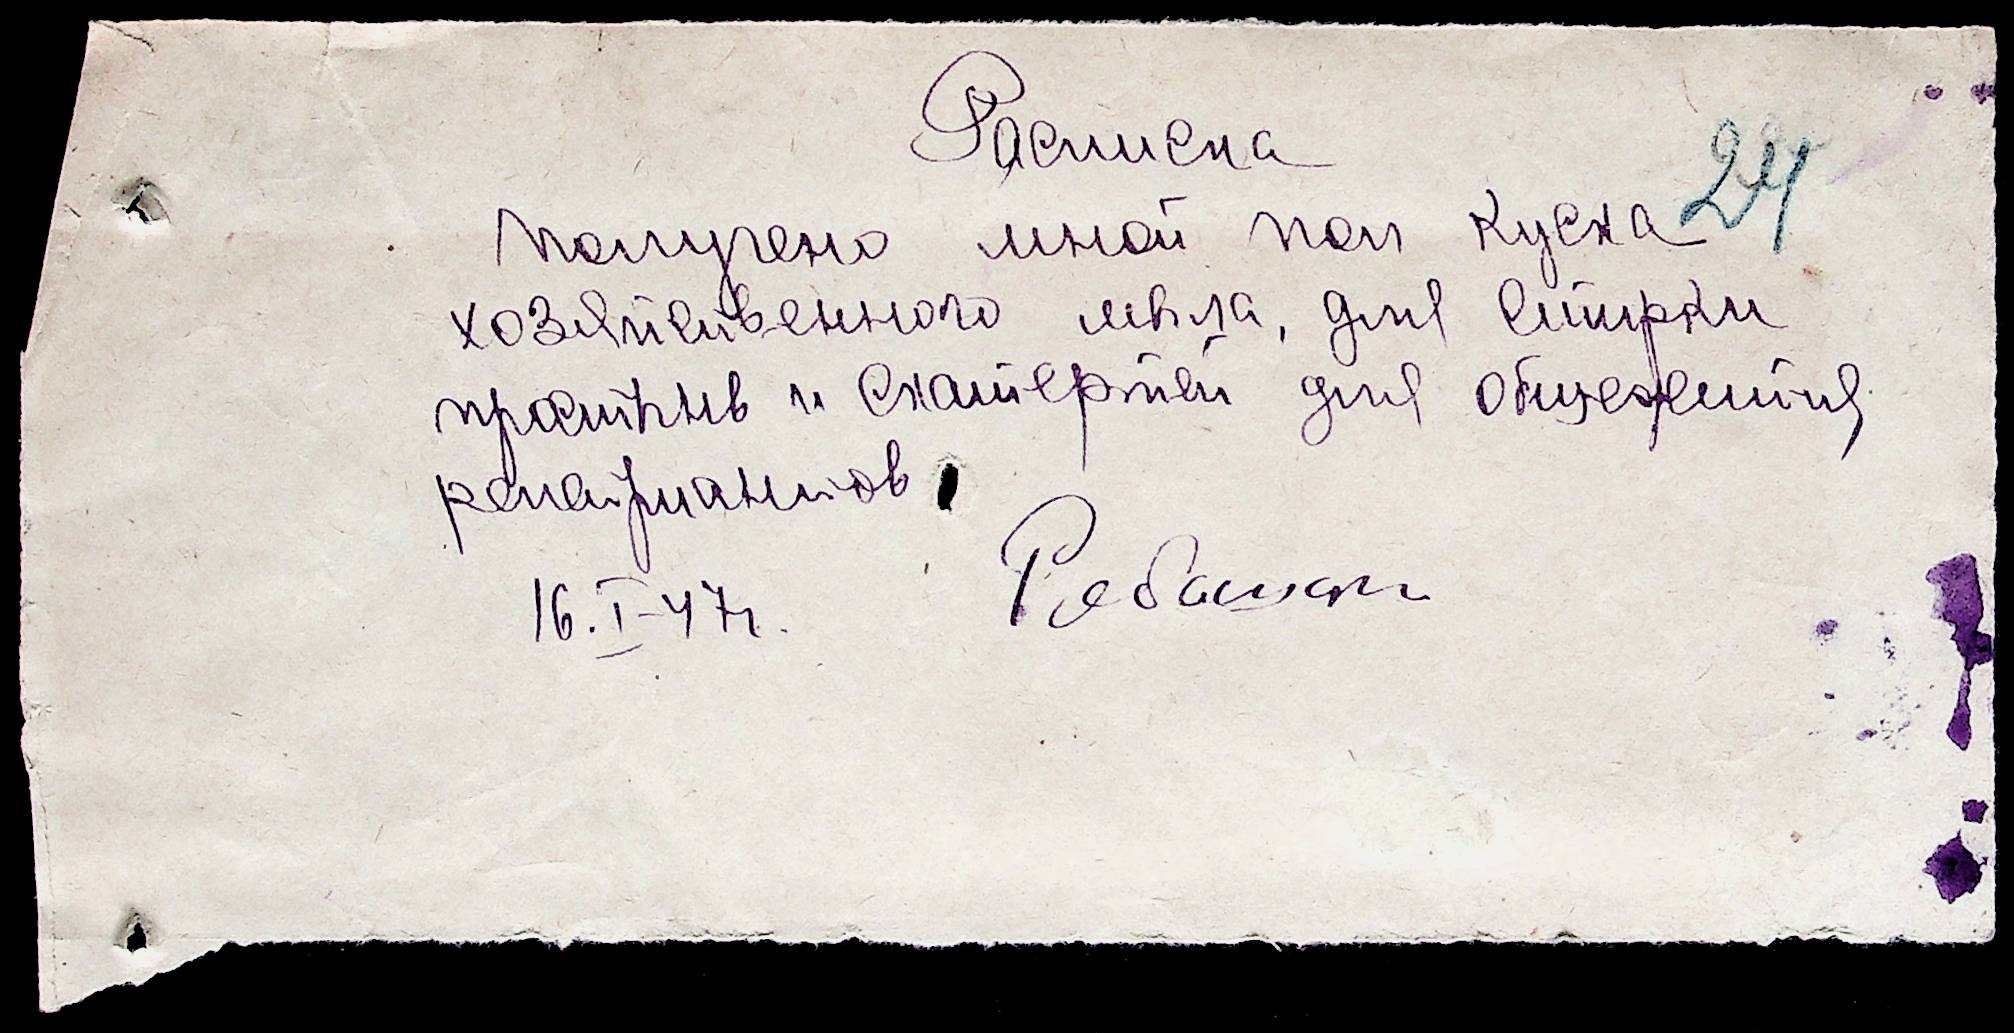 Расписка
24
Получено мной пол куска
хозяйственного мыла, для стирки
простынь и скатертей для общежития
репатриантов
16.I-47г.